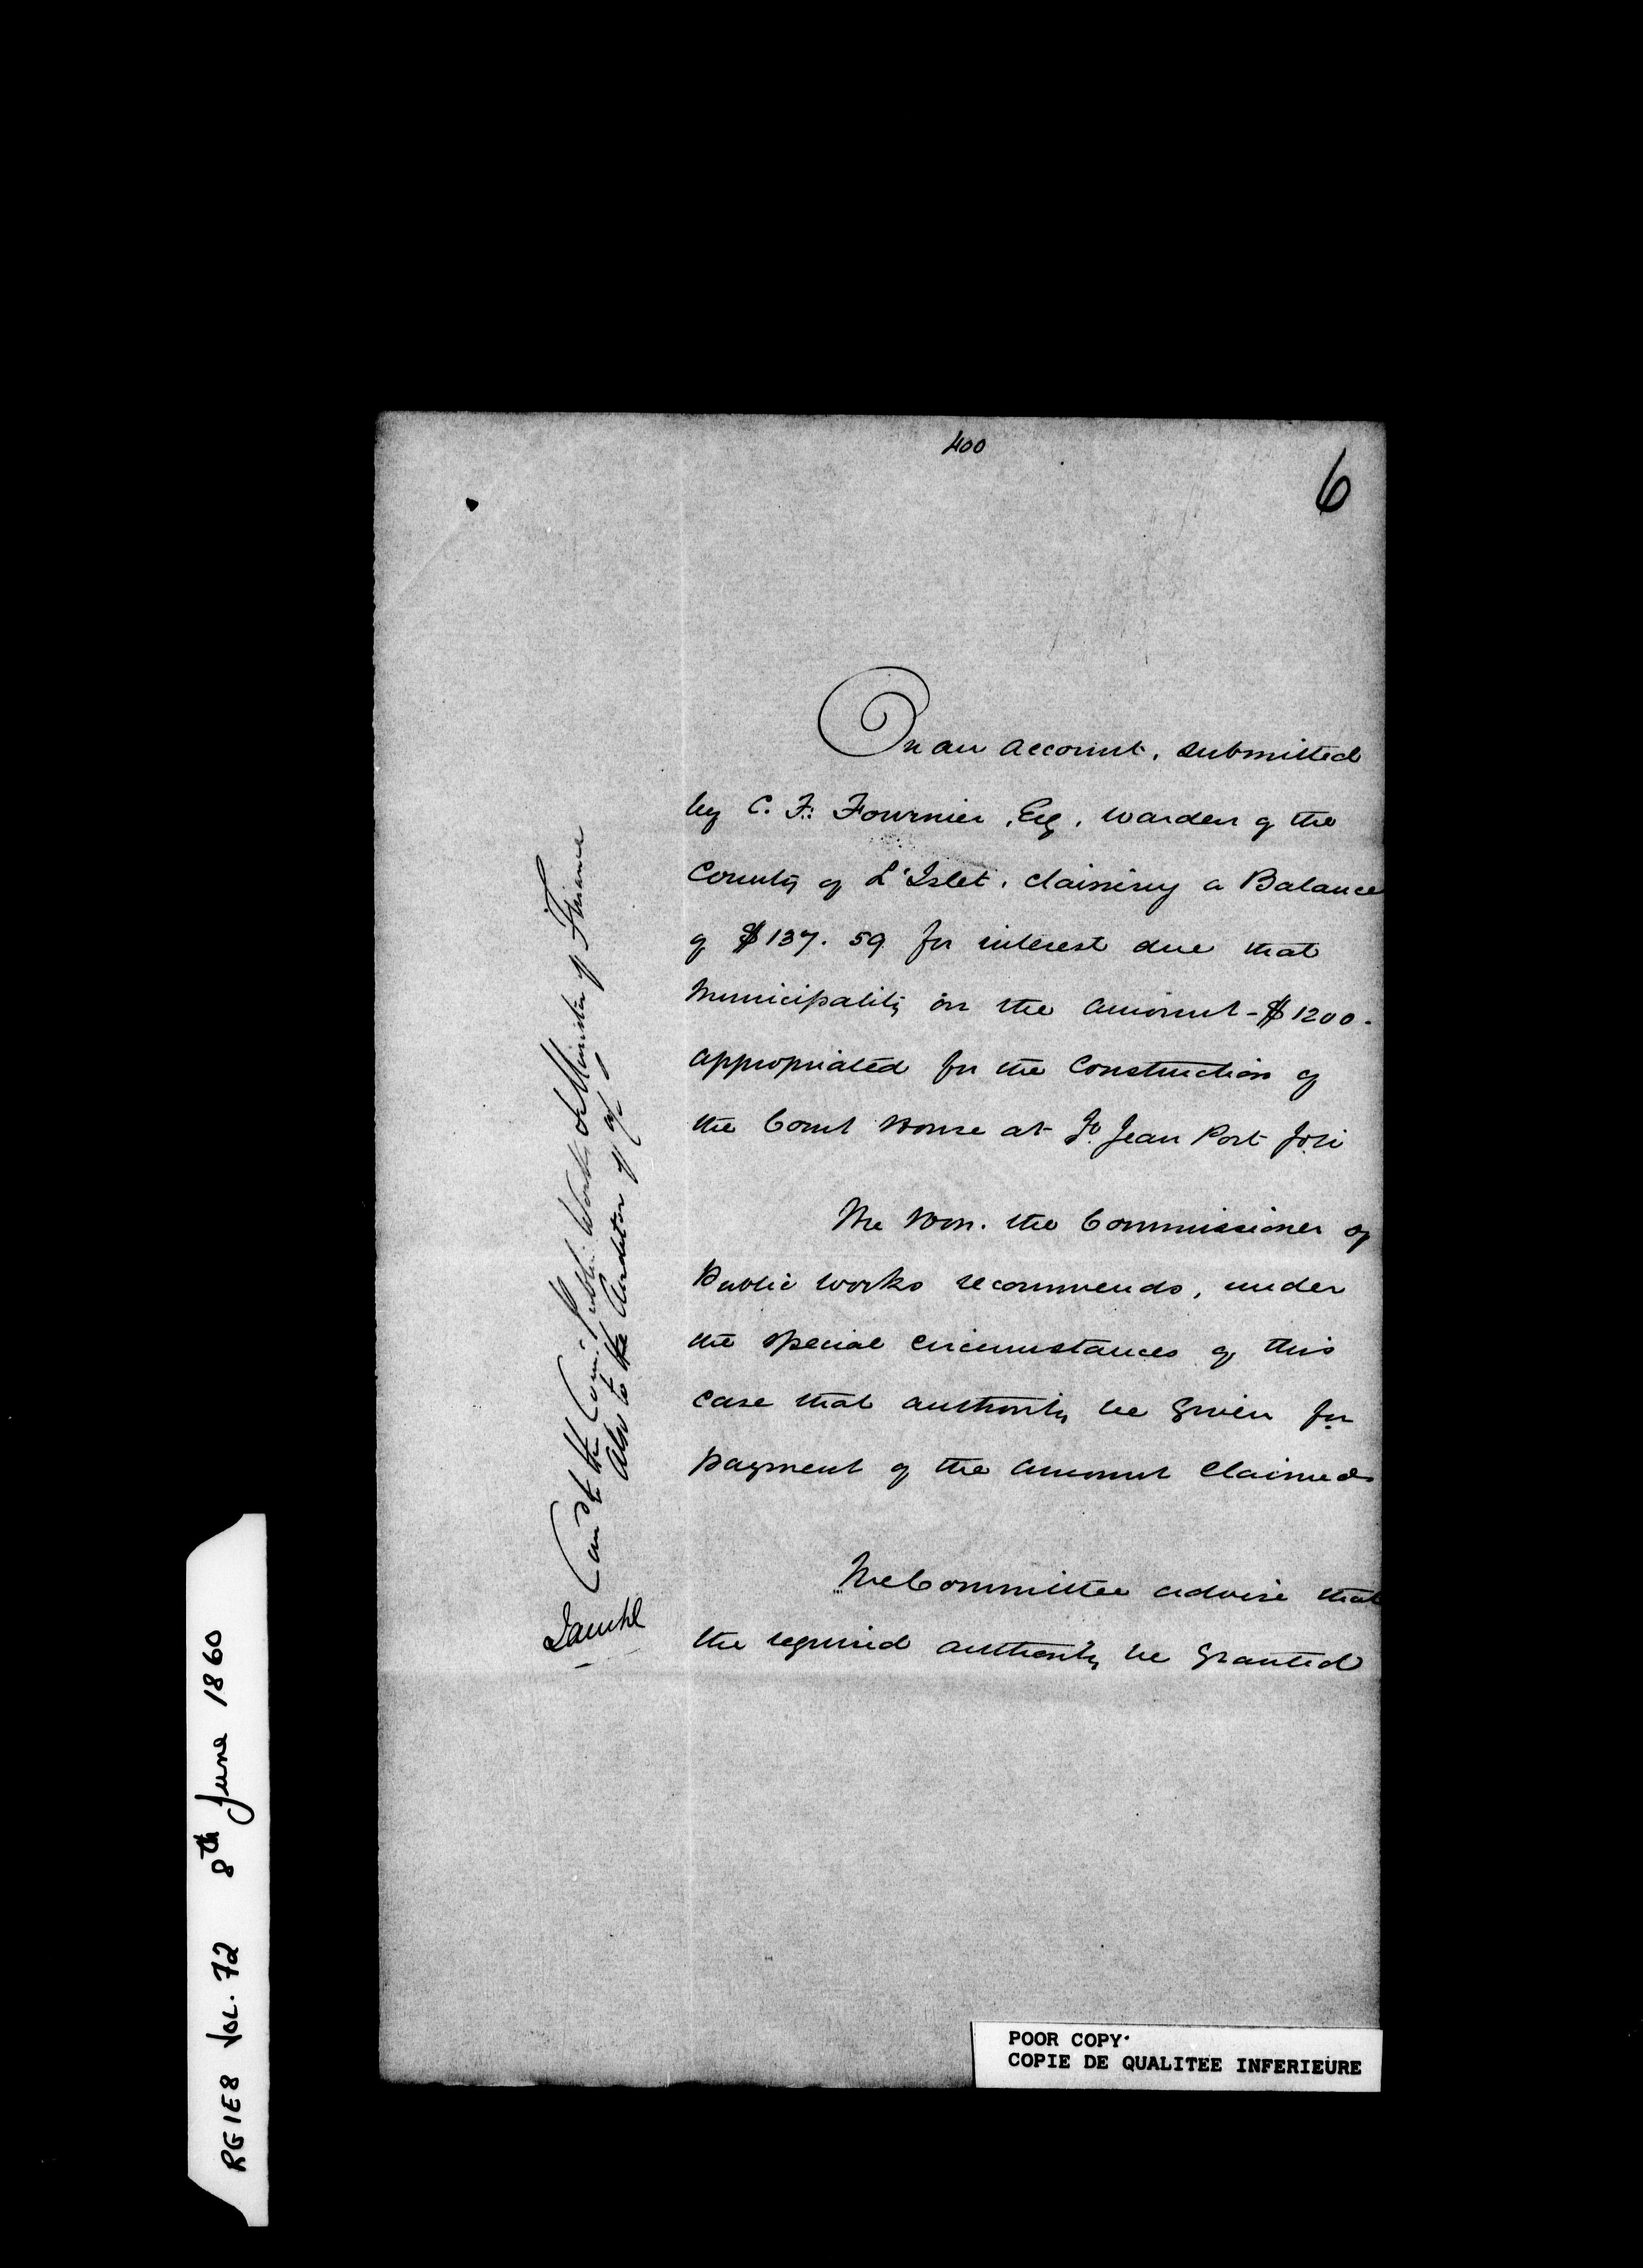 400
6
On an account, submitted
by C. F. Fournier, Esq, Warden of the
County of L'Islet, claiming a Balance
of $137.59 for interest due that
Municipality on the amount - $1200 -
appropriated for the Construction of
the Court House at St. Jean Port Joli
The Hon. the Commissioner of
Public Works recommends, under
the special circumstances of this
case that authority be given for
payment of the amount claimed
The Committee advise that
the required authority be granted
to the Com: Public Works & Minister of Finance
Also to the Auditor
RG1E8 VOL. 72 8th June 1860
POOR COPY
COPIE DE QUALITEE INFERIEURE